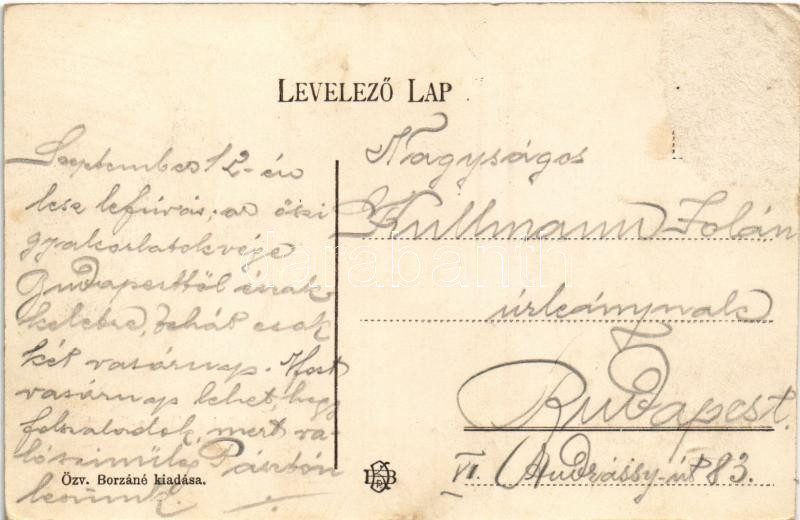 LEVELEZŐ LAP
September 12-én
lesz lefúvás, az őszi
gyakorlatok vége
Budapesttől észak
keletre, tehát csak
két vasárnap. Most
vasárnap lehet, hogy
felszaladok, mert va-
lószinüleg Pásztón
leszünk.
Nagyságos
Kullmann Jolán
úrleánynak
Budapest.
VI. Andrássy-út 83.
Özv. Borzáné kiadása.
darabanth